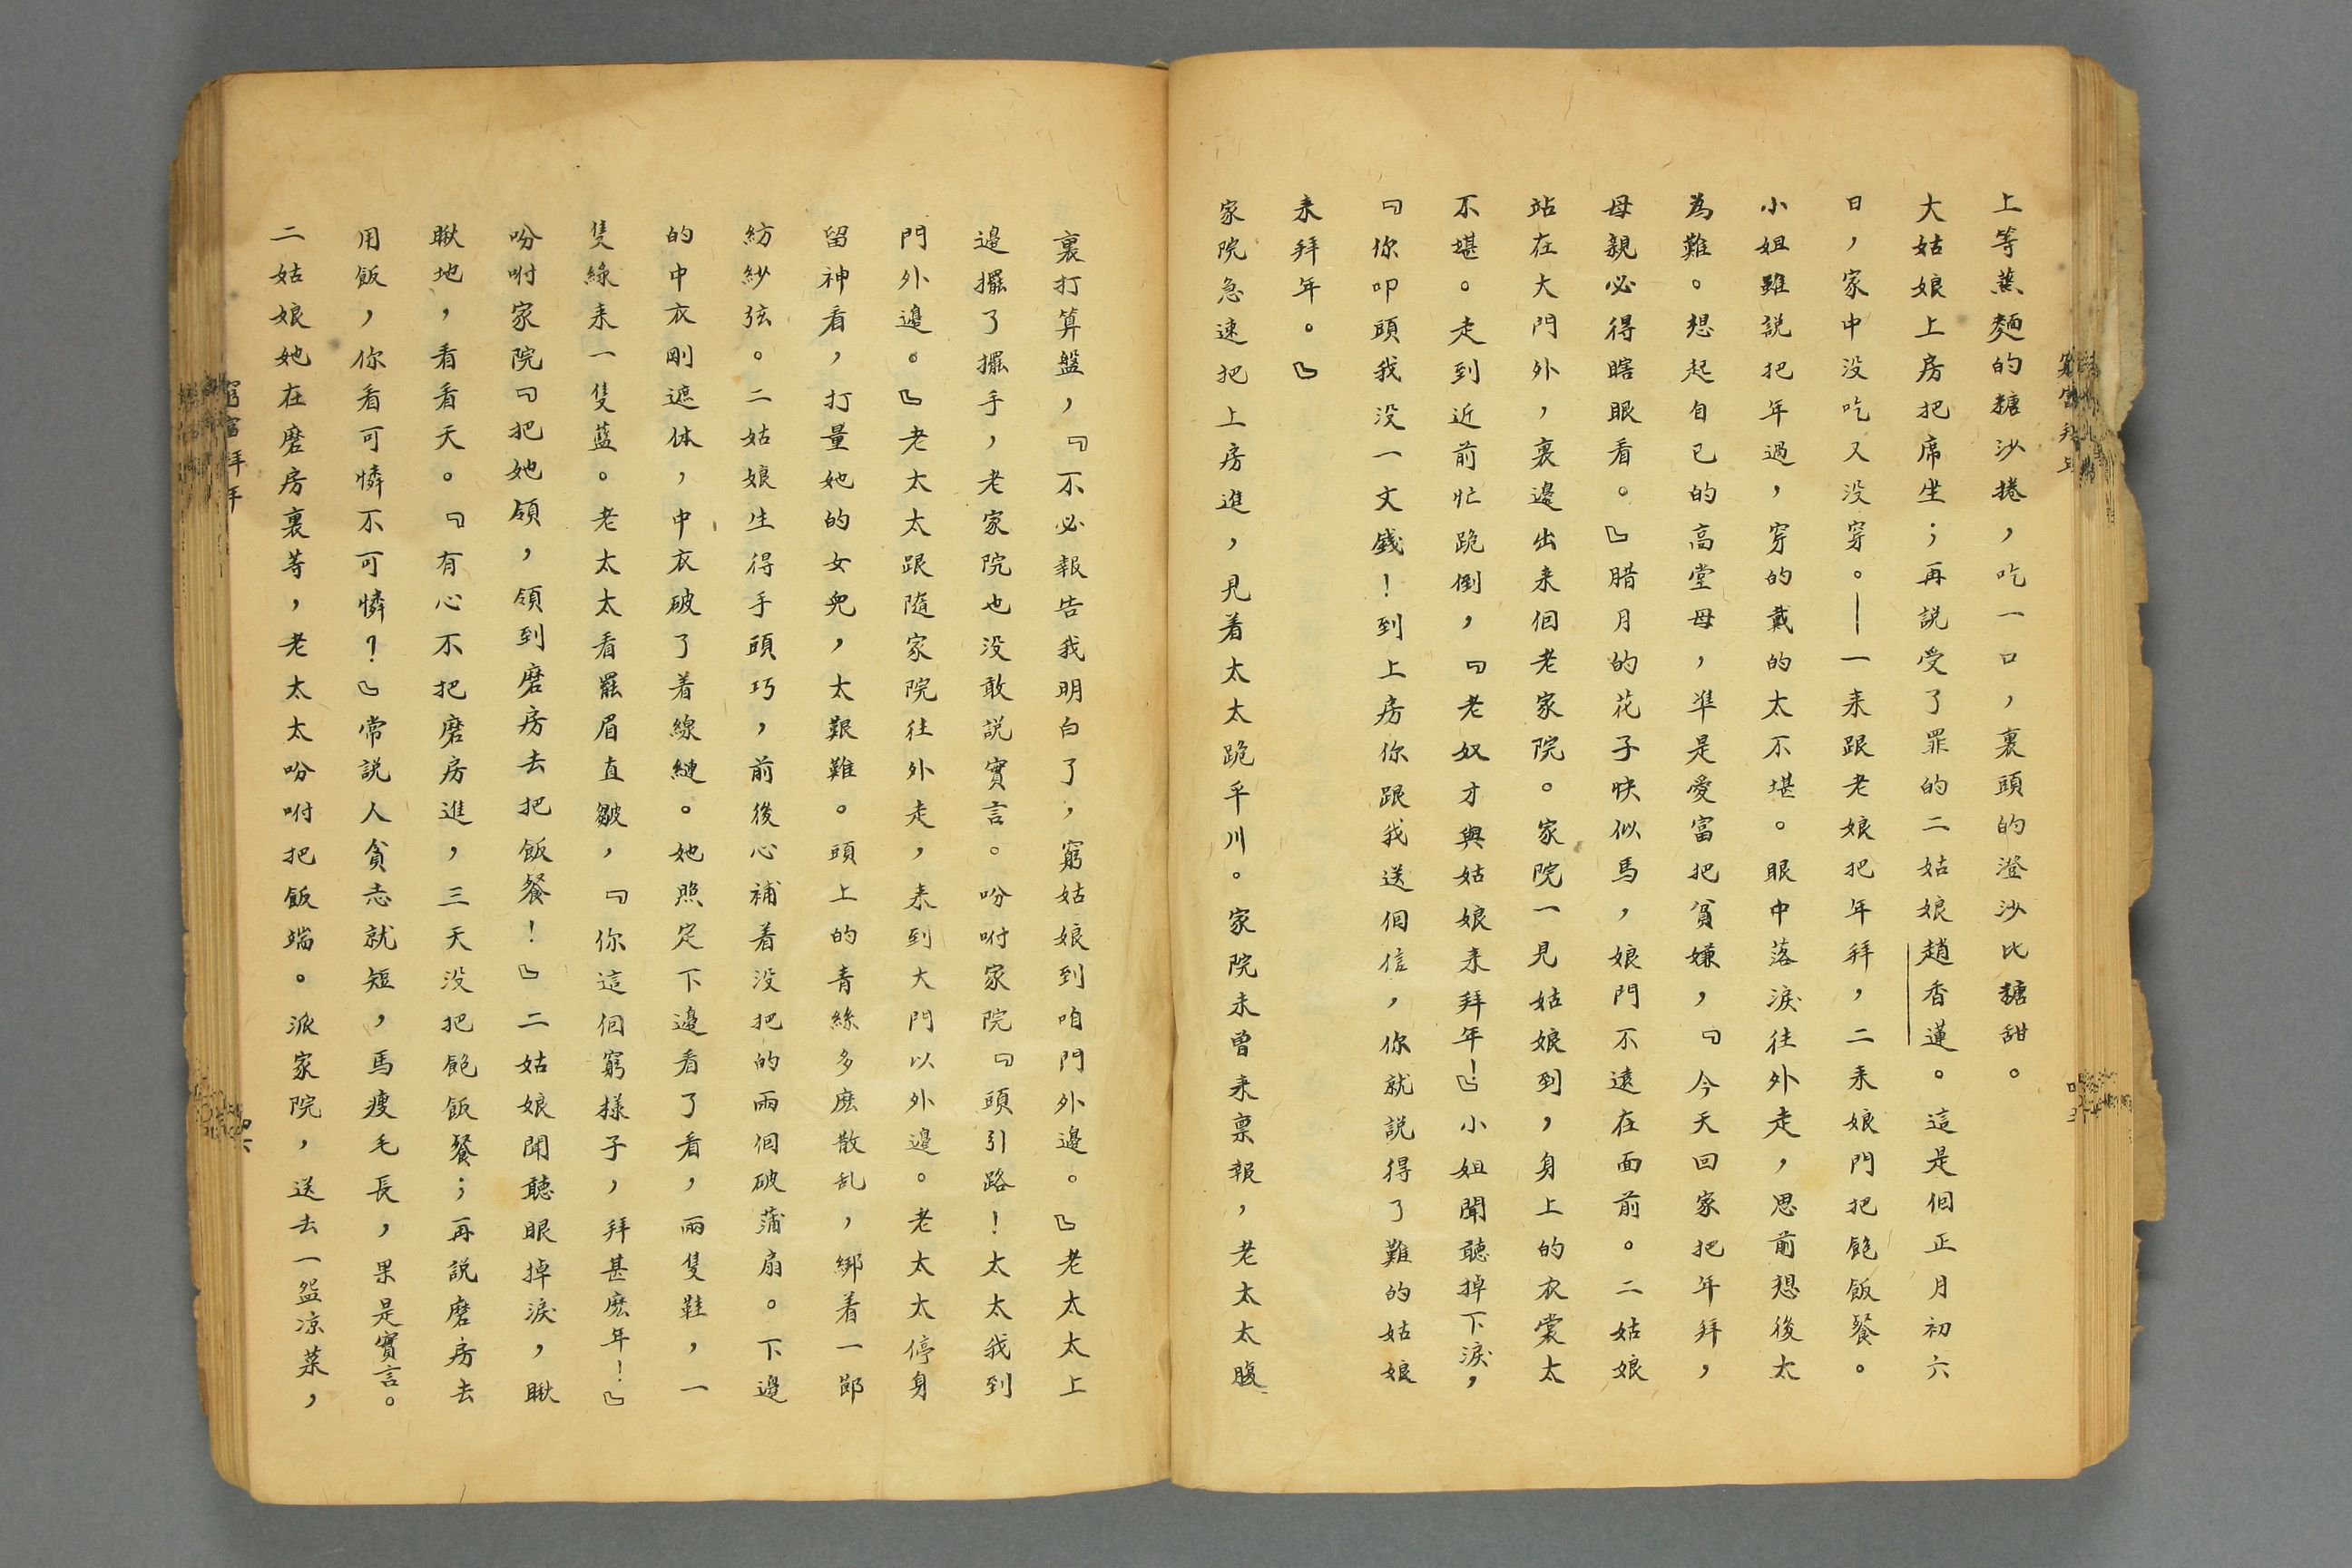 上等蒸麵的糖沙捲，吃一口，裏頭的澄沙比糖甜。
大姑娘上房把席坐；再説受了罪的二姑娘趙香蓮。這是個正月初六
日，家中没吃又没穿。—一来跟老娘把年拜，二来娘門把飽飯餐。
小姐雖説把年過，穿的戴的太不堪。眼中落淚往外走，思前想後太
為難。想起自己的高堂母，準是愛富把貧嫌，『今天回家把年拜，
母親必得瞎眼看。』腊月的花子快似馬，娘門不遠在面前。二姑娘
站在大門外，裏邊出来個老家院。家院一見姑娘到，身上的衣裳太
不堪。走到近前忙跪倒，『老奴才與姑娘来拜年！』小姐聞聽掉下淚，
『你叩頭我没一文錢！到上房你跟我送個信，你就説得了難的姑娘
来拜年。』
家院急速把上房進，見着太太跪平川。家院未曾来禀報，老太太腹
裏打算盤，『不必報告我明白了，窮姑娘到咱門外邊。』老太太上
邊擺了擺手，老家院也没敢説實言。吩咐家院『頭引路！太太我到
門外邊。』老太太跟隨家院往外走，来到大門以外邊。老太太停身
留神看，打量她的女兒，太艱難。頭上的青絲多麽散乱，綁着一節
紡紗弦。二姑娘生得手頭巧，前後心補着没把的兩個破蒲扇。下邊
的中衣剛遮体，中衣破了着線縺。她照定下邊看了看，兩隻鞋，一
隻綠来一隻藍。老太太看罷眉直皺，『你這個窮樣子，拜甚麽年！』
吩咐家院『把她領，領到磨房去把飯餐！』二姑娘聞聽眼掉淚，瞅
瞅地，看看天。『有心不把磨房進，三天没把飽飯餐；再説磨房去
用飯，你看可憐不可憐？！』常説人貧志就短，馬瘦毛長，果是實言。
二姑娘她在磨房裏等，老太太吩咐把飯端。派家院，送去一盌凉菜，
窮富拜年